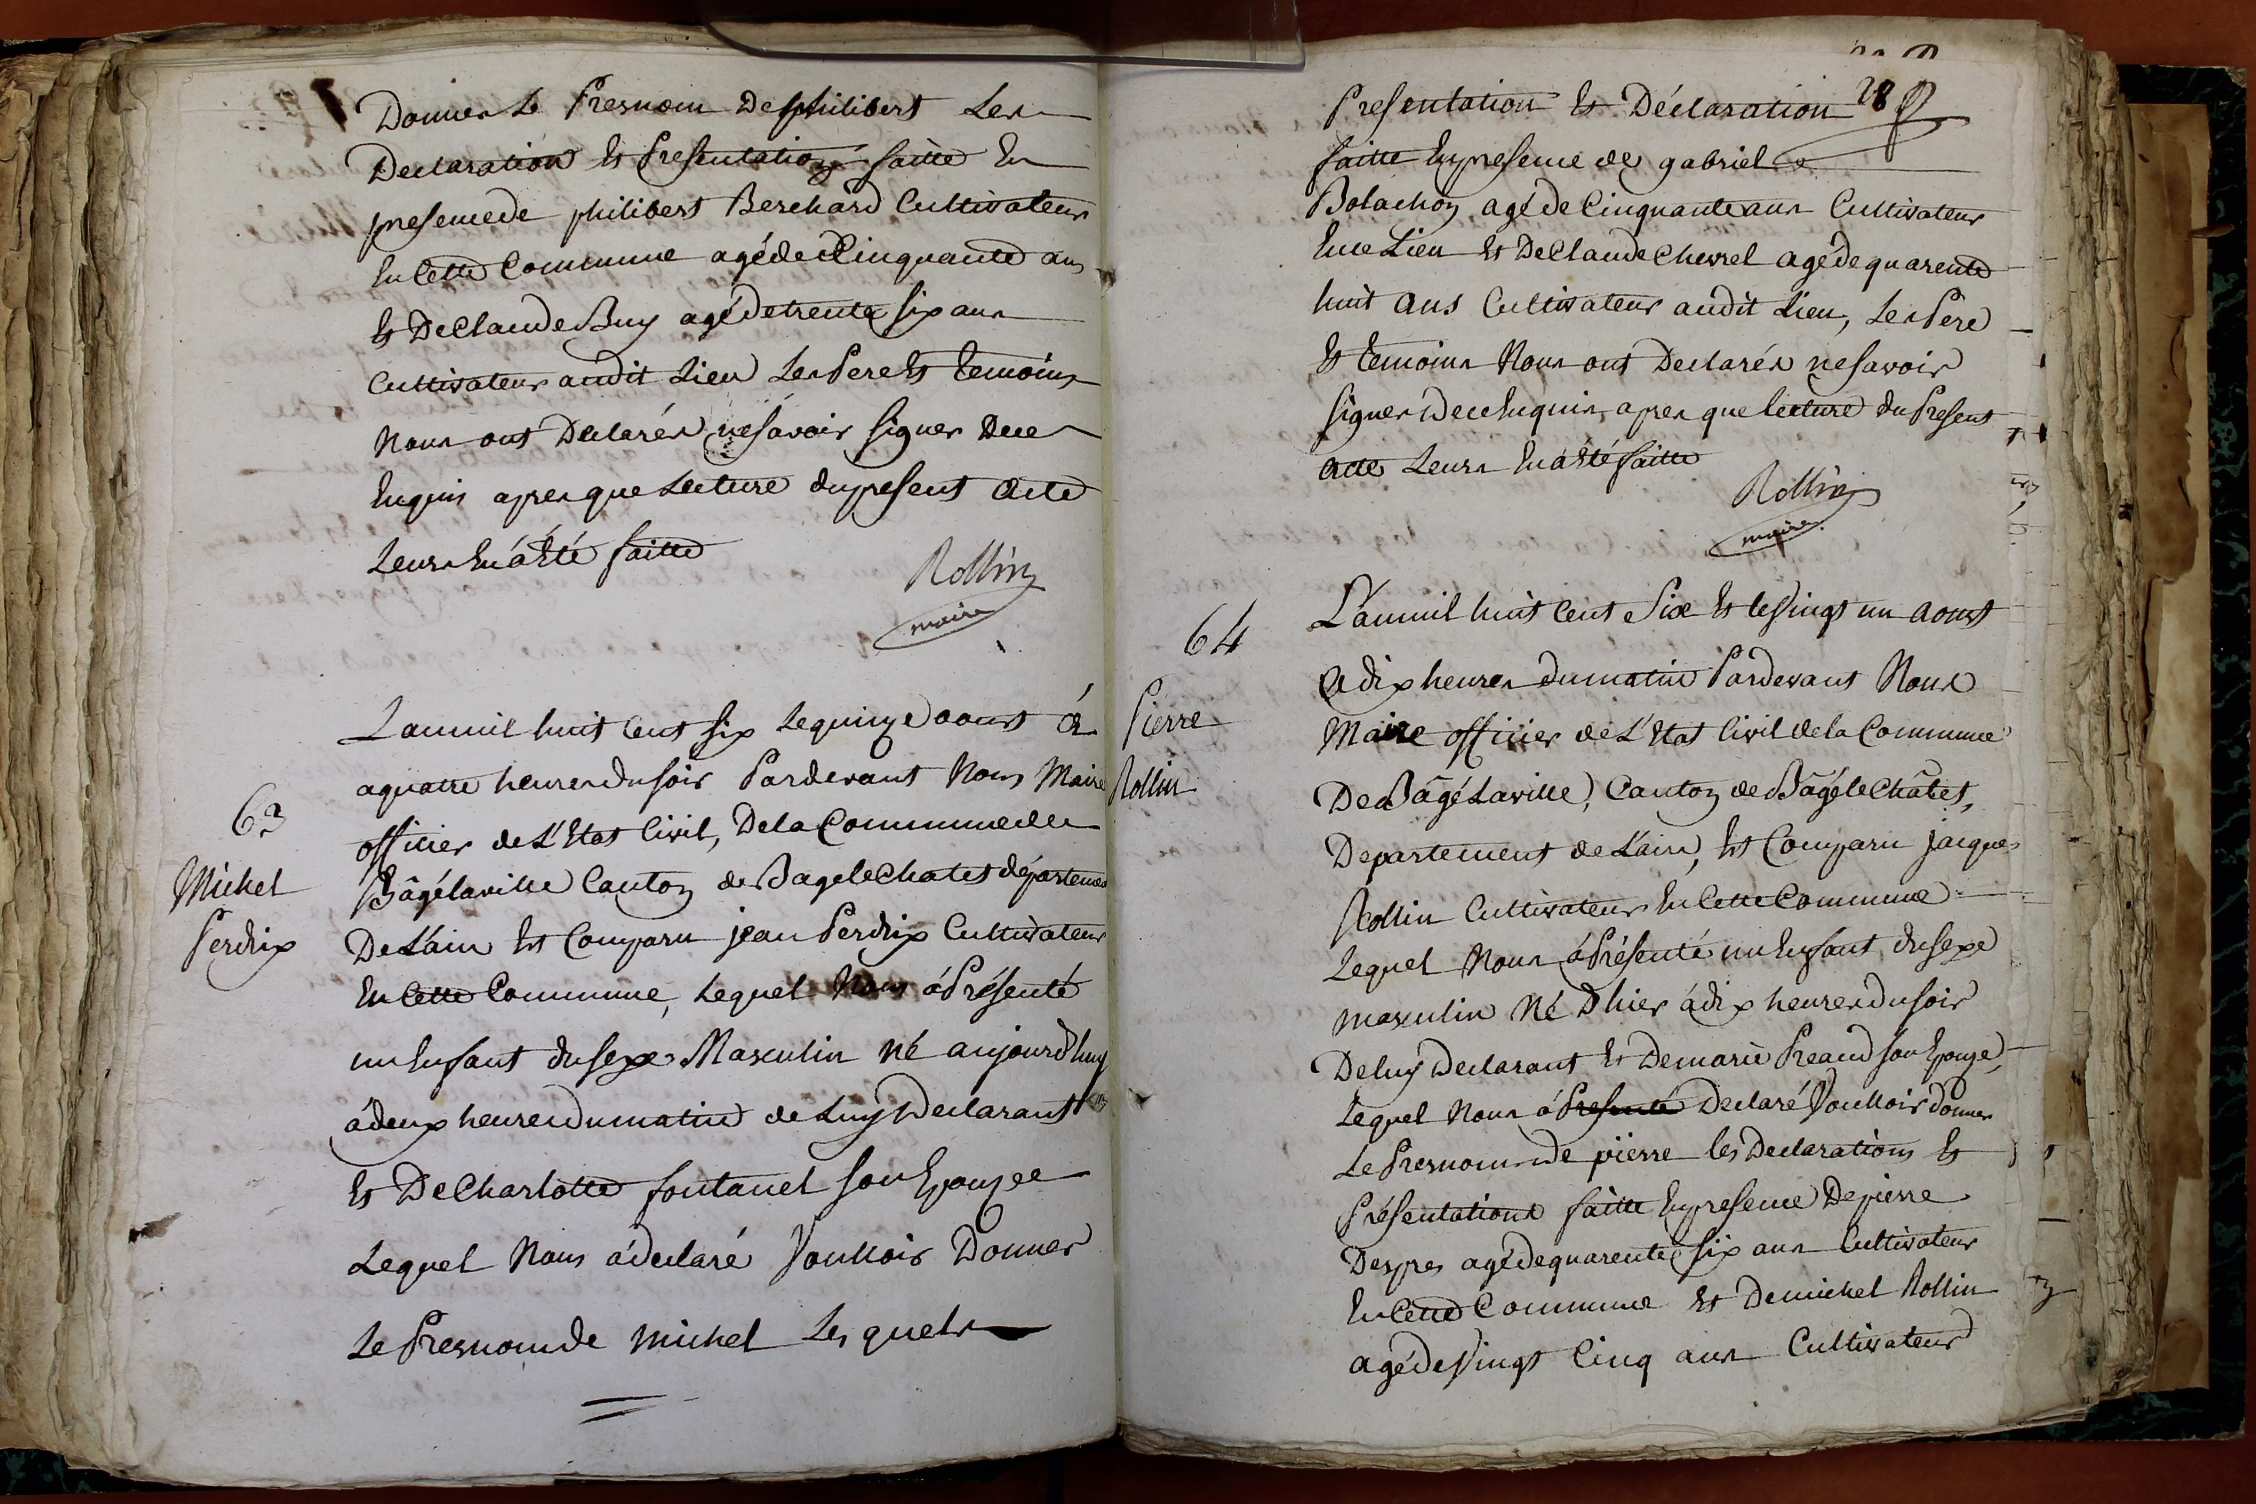 Donner Le Presnom De philibert Les
Declaration Et Presentation faitte En
presence de philibert Berchard Cultivateur
En Cette Commune agé de Cinquante ans
Et De Claude Buy agé de trente six ans
Cultivateur audit Lieu Les Pere Et temoins
Nous ont Declarés ne savoir signer De ce
Enquis apres que Lecture du present Acte
Leurs En á Eté faitte
Rollin
maire
63
Michel
Perdrix
L'an mil huit Cent six Le quinze aoust
a quatre heures du soir Pardevant Nous Maire
officier de L'Etat Civil, De la Commune de
Bâgé laville Canton de Bagé le Chatel département
De L'ain Est Comparu jean Perdrix Cultivateur
En Cette Commune, Lequel Nous á Présenté
un Enfant du sexe Masculin Né aujourd'huy
á deux heures du matin de Luy Declarant
Et De Charlotte fontanel son Epouze
Lequel Nous á declaré Voulloir Donner
Le Presnom de Michel Les quels
28
Presentation Et Déclaration
faitte En presence de gabriel
Bolachon agé de Cinquante ans Cultivateur
En ce Lieu Et De Claude Chevrel agé de quarente
huit ans Cultivateur audit Lieu, Les Pere
Et temoins Nous ont Declarés ne savoir
signer De ce Enquis, apres que lecture du Present
acte Leurs En á Eté faitte
Rollin
maire
64
Pierre
Rollin
L'an mil huit Cent Six Et le Vingt un aoust
A dix heures du matin Pardevant Nous
Maire officier de L'Etat Civil de la Commune
De Bâgé Laville, Canton de Bâgé le Châtel,
Departement de L'ain, Est Comparu jacques
Rollin Cultivateur En Cette Commune
Lequel Nous á Présenté un Enfant du sexe
masculin Né D'hier á dix heures du soir
De luy Declarant Et De marie Preaud son Epouze,
Lequel Nous á Presenté Declaré Voulloir donner
Le Presnom de pierre les Declarations Et
Présentations faitte En presence De pierre
Despres agé de quarente six ans Cultivateur
En Cette Commune Et De michel Rollin
agé de Vingt Cinq ans Cultivateur